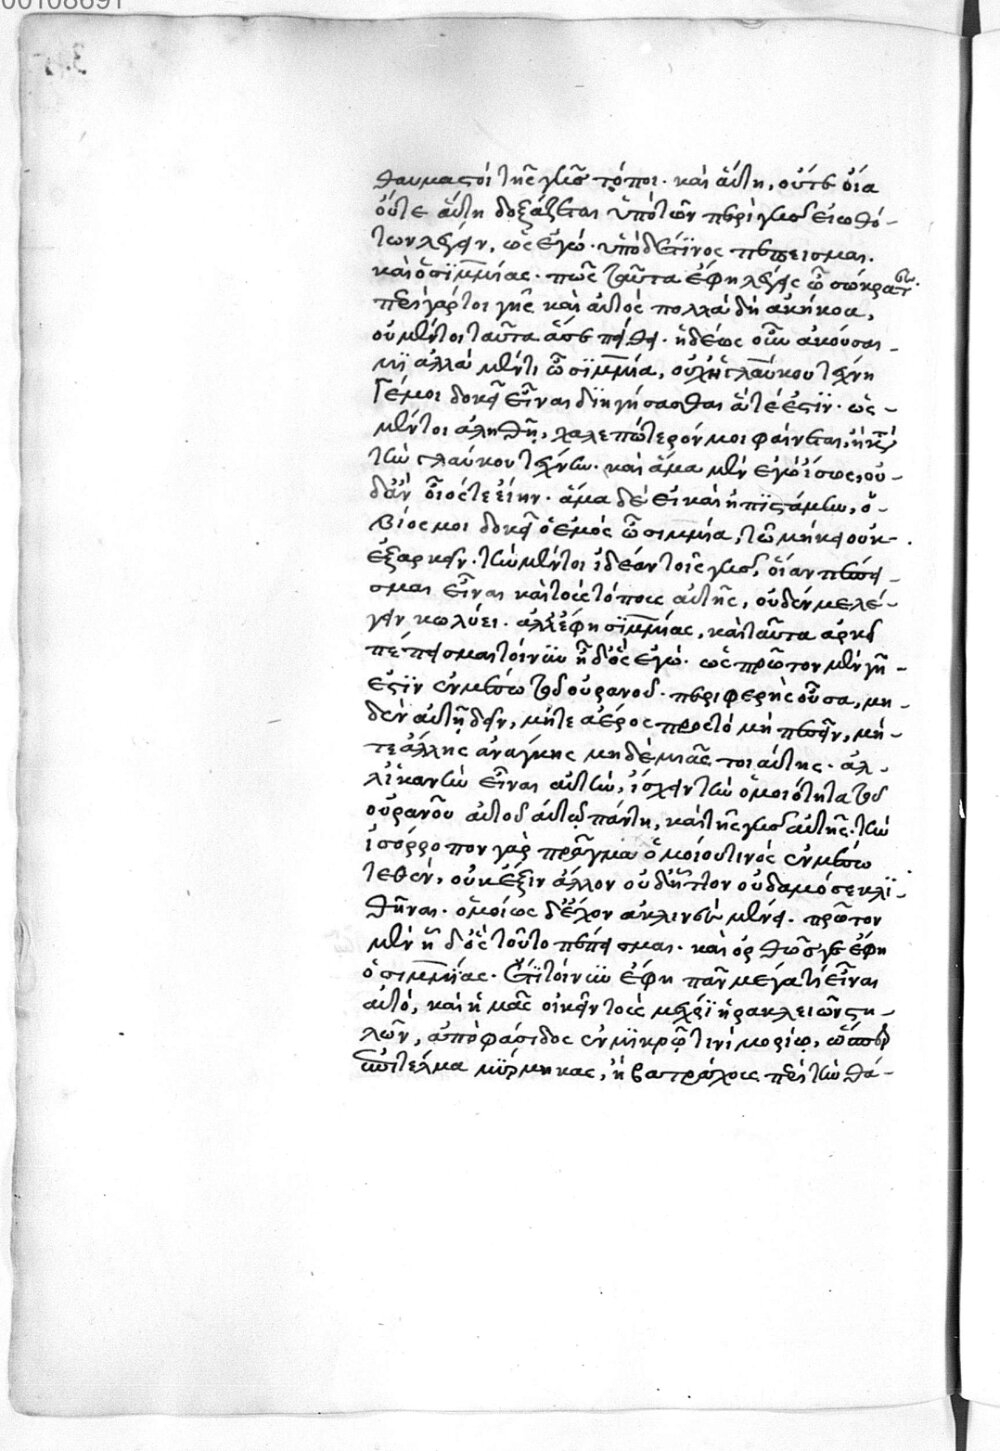 00108691
θαυμαστοὶ τῆς γῆς τόποι. καὶ αὕτη, οὔτε οἵα
οὔτε αὕτη δοξάζεται ὑπὸ τῶν περὶ γῆς εἰωθό-
των λέγειν, ὡς ἐγὼ ὑπό δέ τινος πέπεισμαι.
καὶ ὁ σιμμίας. πῶς ταῦτα ἔφη λέγεις ὦ σώκρατες.
περὶ γάρ τοι γῆς καὶ αὐτὸς πολλὰ δὴ ἀκήκοα,
οὐ μέντοι ταῦτα ἅ σε πείθει. ἡδέως οὖν ἀκούσαι-
μι ἀλλὰ μέντοι ὦ σιμμία, οὐχὶ γλαύκου τέχνη
γέ μοι δοκεῖ εἶναι διηγήσασθαι ἅ τέ ἐστιν. ὡς-
μέντοι ἀληθῆ, χαλεπώτερόν μοι φαίνεται, ἢ κατὰ
τὴν γλαύκου τέχνην. καὶ ἅμα μὲν ἐγὼ ἴσως, οὐ-
δ' ἂν οἷός τε εἴην. ἅμα δὲ εἰ καὶ ἠπιστάμην, ὁ-
βίος μοι δοκεῖ ὁ ἐμὸς ὦ σιμμία, τῷ μήκει οὐκ-
ἐξαρκεῖν. τὴν μέντοι ἰδέαν τοῖς γῆς, οἵαν πέπει-
σμαι εἶναι καὶ τοὺς τόπους αὐτῆς, οὐδέν με λέ-
γειν κωλύει. ἀλλ' ἔφη σιμμίας, καὶ ταῦτα ἀρκεῖ
πέπεισμαι τοίνυν ἦ δ' ὃς ἐγώ. ὡς πρῶτον μὲν γῆ-
ἐστιν ἐν μέσῳ τοῦ οὐρανοῦ. περιφερὴς οὖσα, μη-
δὲν αὐτῇ δεῖν, μήτε ἀέρος πρὸς τὸ μὴ πεσεῖν, μή-
τε ἄλλης ἀνάγκης μηδεμιᾶς τοιαύτης. ἀλ-
λ' ἱκανὴν εἶναι αὐτὴν, ἴσχειν τὴν ὁμοιότητα τοῦ
οὐρανοῦ αὐτοῦ αὑτῷ πάντη, καὶ τῆς γῆς αὐτῆς. τὴν
ἰσόρροπον γὰρ πρᾶγμα ὁμοίου τινὸς ἐν μέσῳ
τεθὲν, οὐκ ἕξιν ἄλλον οὐδ' ἧττον οὐδαμόσε κλι-
θῆναι. ὁμοίως δ' ἔχον ἀκλινὲς μένει. πρῶτον
μὲν ἦ δ' ὃς τοῦτο πέπεισμαι. καὶ ὀρθῶς γε ἔφη
ὁ σιμμίας. ἔτι τοίνυν ἔφη πᾶν μέγα τι εἶναι
αὐτό, καὶ ἡμᾶς οἰκεῖν τοὺς μέχρι ἡρακλείων στη-
λῶν, ἀπὸ φάσιδος ἐν μικρῷ τινὶ μορίῳ, ὥσπερ
περὶ τέλμα μύρμηκας, ἢ βατράχους περὶ τὴν θά-